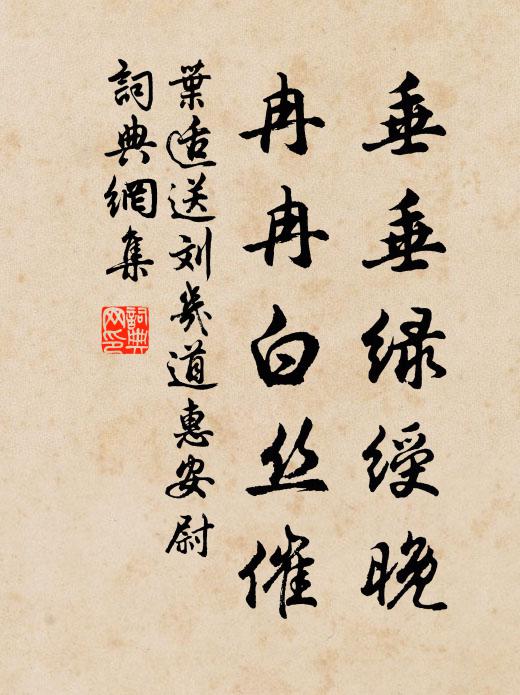 垂垂绿绶晚
冉冉白丝催
葉适送刘幾道惠安尉
詞典網集
詞典网印